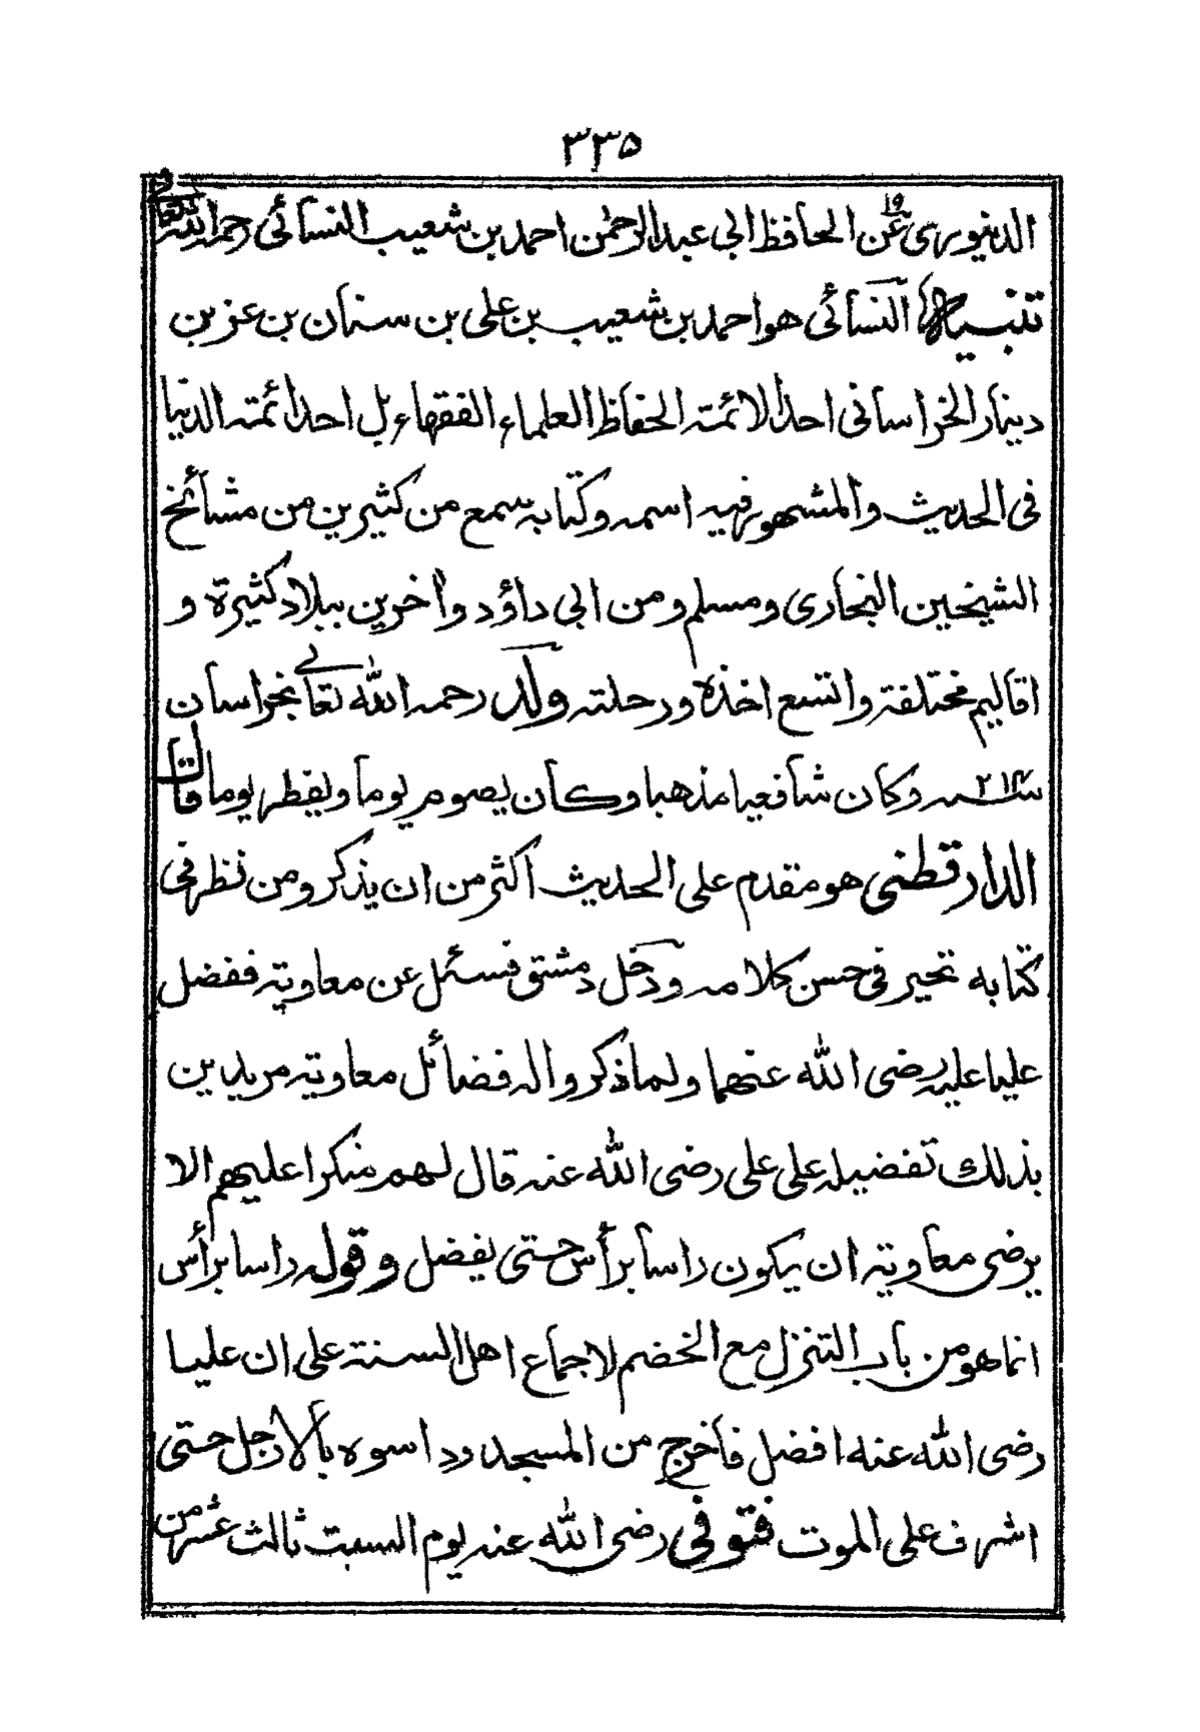 ٣٣٥
الدينوري عن الحافظ ابي عبد الرحمٰن احمد بن شعيب النسائي رحمه الله تعالى
تنبيه النسائي هو احمد بن شعيب بن علي بن سنان بن عز بن
دينار الخراساني احد الائمة الحفاظ العلماء الفقهاء بل احد ائمة الدنيا
في الحديث والمشهور فيه اسمه وكتابه سمع من كثيرين من مشائخ
الشيخين البخاري ومسلم ومن ابي داؤد واٰخرين ببلاد كثيرة و
اقاليم مختلفة واتسع اخذه ورحلته ولد رحمه الله تعالى بخراسان
سنة ٢١٤ وكان شافعيا مذهبا وكان يصوم يوما ويفطر يوما قال
الدارقطني هو مقدم على الحديث اكثر من ان يذكر ومن نظر في
كتابه تحير في حسن كلامه ودخل دمشق فسئل عن معاوية ففضل
عليا عليه رضى الله عنهما ولما ذكروا له فضائل معاوية مريدين
بذلك تفضيله على علي رضى الله عنه قال لهم منكرا عليهم الا
يرضى معاوية ان يكون راسا برأس حتى يفضل وقوله راسا برأس
انما هو من باب التنزل مع الخصم لاجماع اهل السنة على ان عليا
رضى الله عنه افضل فاخرج من المسجد وداسوه بالارجل حتى
اشرف على الموت فتوفى رضى الله عنه يوم السبت ثالث عشر من